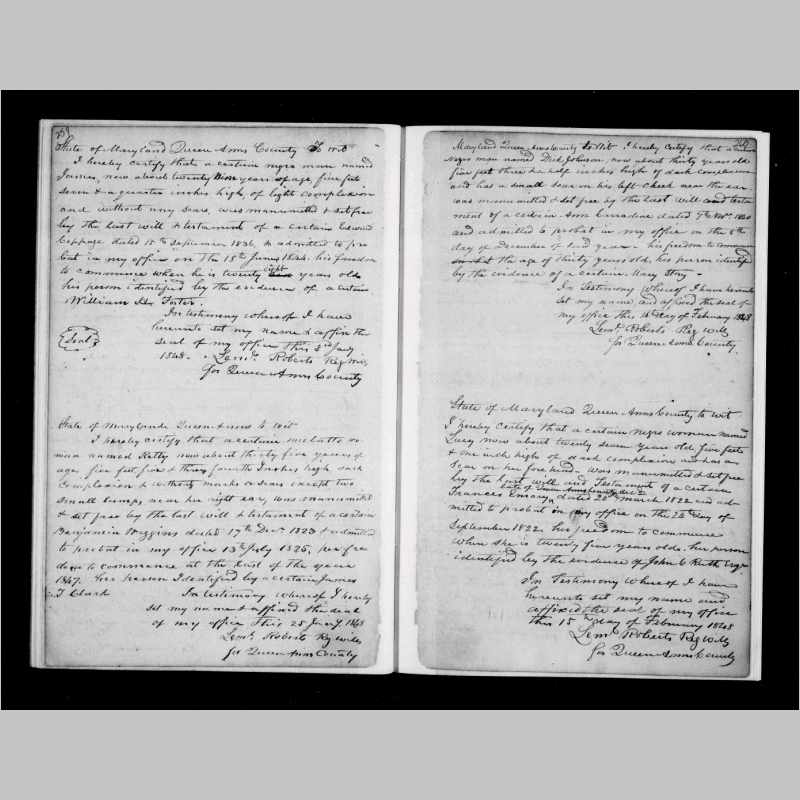 State of Maryland Queen Anns County to wit
I hereby certify that a certain negro man named
James, now about twenty nine years of age, five feet
seven & a quarter inches high, of light complexion
and without any scars, was manumitted & set free
by the last will & testament of a certain Edward
Coppage dated 15th September 1836, & admitted to pro
bat in my office on the 18th June 1844. his freedom
to commence when he is twenty eight years old
his person identified by the evidence of a certain
William Foster.
In testimony whereof I have
hereunto set my name & affix the
Seal
seal of my office this 3rd Jany
1848. Leml. Roberts Reg Wills
for Queen Anns County
State of Maryland Queen Anns to wit
I hereby certify that a certain mulatto wo
man named Kitty now about thirty five years of
age five feet five & three fourth Inches high dark
Complexion & without marks or scars except two
small bumps near his right ear, was manumitted
& set free by the last will & testament of a certain
Benjamin Wiggins dated 17th Decr. 1823 & admitted
to probat in my office 13th July 1825, her free
dom to commence at the End of the year
1847. her person Identified by a certain James
T Clark In testimony whereof I hereby
set my name & affixed the seal
of my office this 25 Jany 1848
Leml. Roberts Reg Wills
for Queen Anns County
Maryland Queen Anns County to Wit I hereby certify that a
Negro man named Dick Johnson, now about thirty years old
five feet three & a half inches high of dark complexion
and has a small scar on his left cheek near the ear
was manumitted & set free by the last will and testa
ment of a certain Ann dated 9th Novr. 1820
and admitted to probat in my office on the 8th
day of December of said year. his freedom to commence
at the age of thirty years old, his person identified
by the evidence of a certain Mary Story
In Testimony whereof I have hereunto
set my name and affixed the seal of
my office this day of February 1848
Leml. Roberts Reg Wills
for Queen Anns County.
State of Maryland Queen Anns County to wit
I hereby certify that a certain negro woman named
Lucy now about twenty seven years old, five feet
& one inch high of dark complexion and has a
Scar on her forehead. was manumitted & set free
by the last will and Testament of a certain
late of Queen Anns County decd
Frances Emory dated 20th March 1822 and ad
mitted to probat in my office on the 24th day of
September 1822. her freedom to commence
when she is twenty five years old. her person
identified by the evidence of John C Ruth Esqr
In Testimony whereof I have
hereunto set my name and
affixed the seal of my office
this 15th day of February 1848
Leml. Roberts Reg Wills
for Queen Anns County